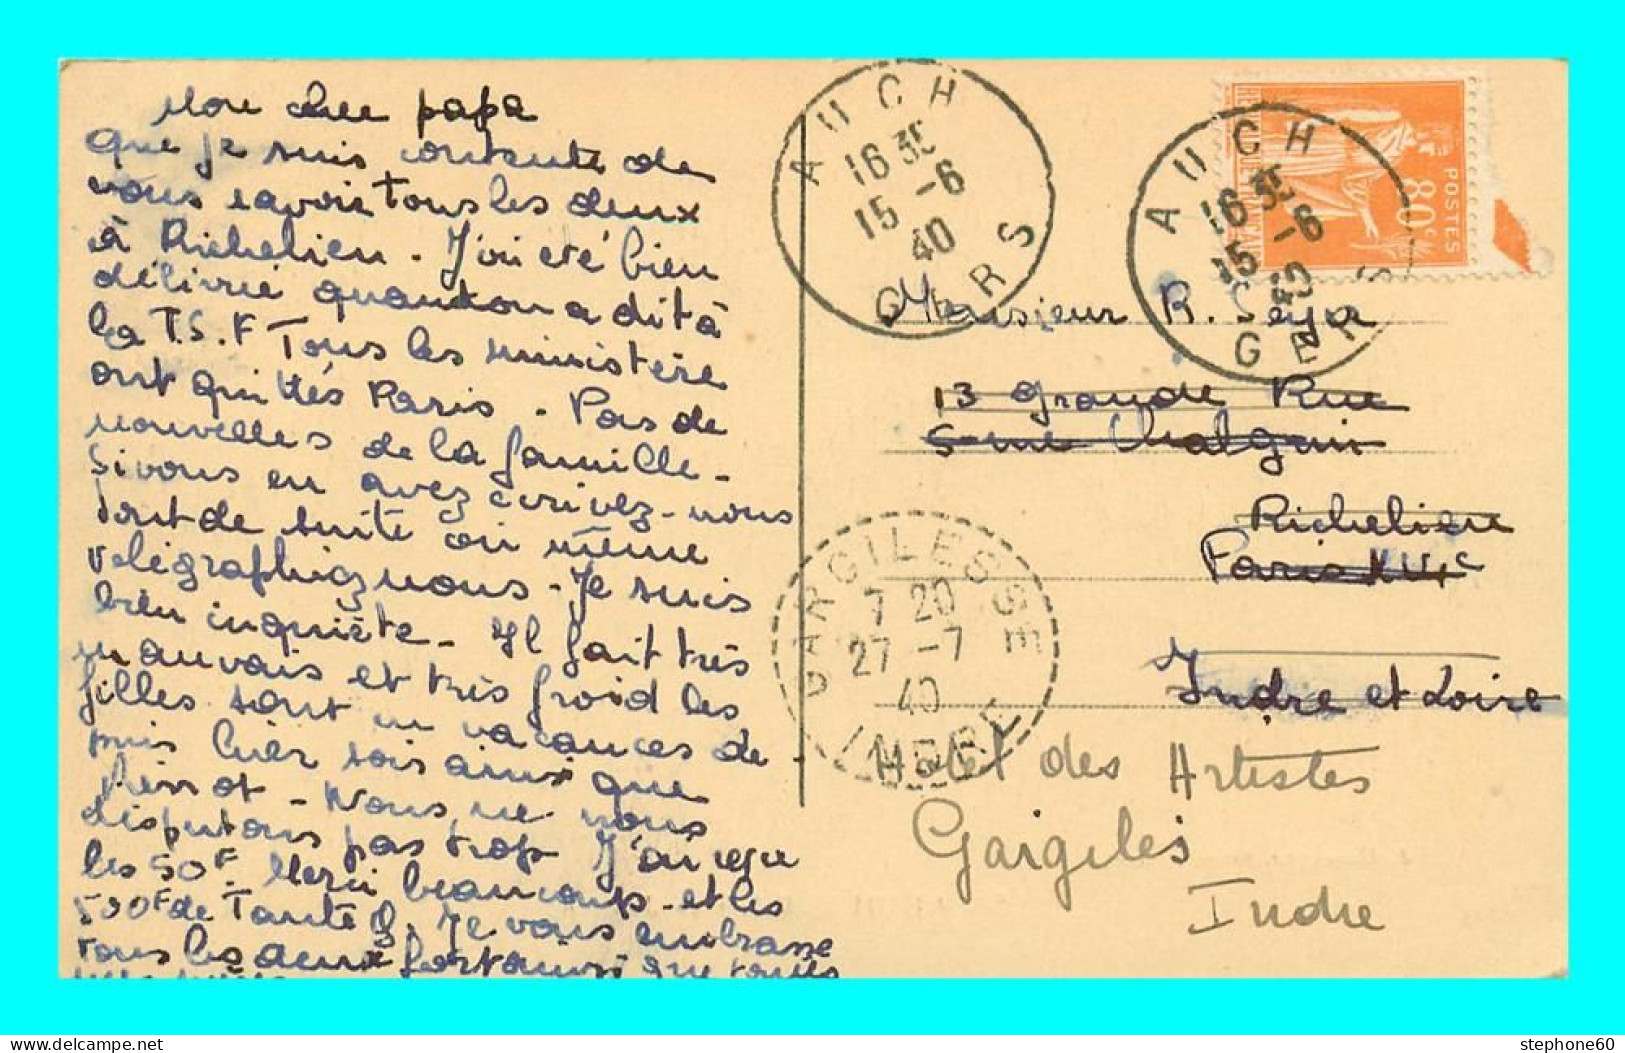 Mon cher papa
Que je suis contente de
vous savoir tous les deux
à Richelieu. J'ai été bien
délivrée quand on a dit à
la T.S.F Tous les ministère
ont quittés Paris. Pas de
nouvelles de la famille.
Si vous en avez écrivez-nous
tout de suite ou même
télégraphiez nous. Je suis
bien inquiète. Il fait très
mauvais et très froid les
filles sont en vacances de-
puis hier soir ainsi que
Disputons pas trop J'ai reçu
les 50F. Merci beaucoup et les
500F de Tante G. Je vous embrasse
tous les deux
AUCH
16 35
15 -6
40
GERS
AUCH
16 35
15 -6
40
GERS
POSTES
80c
Monsieur R.
13 Grande Rue
Chalgrin
Richelieu
Paris XVIe
Indre et Loire
GARGILESSE
7 20
27 -7
40
INDRE
Hotel des Artistes
Gargiles
Indre
delcampe.net
stephone60